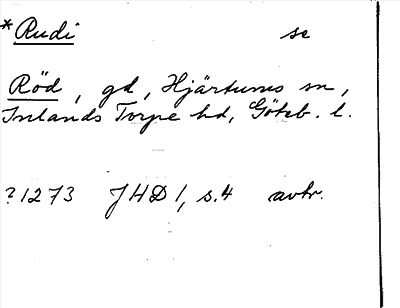 *Rudi se
Röd, gd, Hjärtums sn,
Inlands Torpe hd, Göteb. l.
?1273 JHD 1, s.4 avtr.